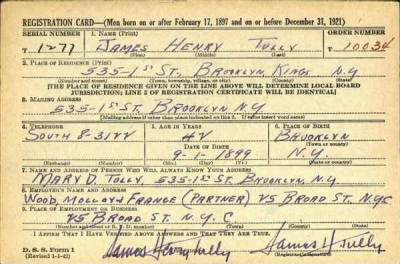 REGISTRATION CARD—(Men born on or after February 17, 1897 and on or before December 31, 1921)
SERIAL NUMBER 1. NAME (Print) ORDER NUMBER
T 1277 JAMES HENRY TULLY T 10034
(First) (Middle) (Last)
2. PLACE OF RESIDENCE (Print)
535-1st ST. BROOKLYN, KINGS N.Y
(Number and street) (Town, township, village, or city) (County) (State)
[THE PLACE OF RESIDENCE GIVEN ON THE LINE ABOVE WILL DETERMINE LOCAL BOARD
JURISDICTION; LINE 2 OF REGISTRATION CERTIFICATE WILL BE IDENTICAL]
3. MAILING ADDRESS
535-1st ST. BROOKLYN N.Y.
[Mailing address if other than place indicated on line 2. If same insert word same]
4. TELEPHONE 5. AGE IN YEARS 6. PLACE OF BIRTH
SOUTH 8- BROOKLYN
DATE OF BIRTH (Town or county)
9-1-1899 N.Y.
(Exchange) (Number) (Mo.) (Day) (Yr.) (State or country)
7. NAME AND ADDRESS OF PERSON WHO WILL ALWAYS KNOW YOUR ADDRESS
MARY D. TULLY, 535-1st ST. BROOKLYN, N.Y.
8. EMPLOYER'S NAME AND ADDRESS
WOOD, MOLLOY & FRANCE (PARTNER) 75 BROAD ST. N.Y.C
9. PLACE OF EMPLOYMENT OR BUSINESS
75 BROAD ST. N.Y.C
(Number and street or R. F. D. number) (Town) (County) (State)
I AFFIRM THAT I HAVE VERIFIED ABOVE ANSWERS AND THAT THEY ARE TRUE.
D. S. S. Form 1
(Revised 1-1-42) James Henry Tully James H Tully